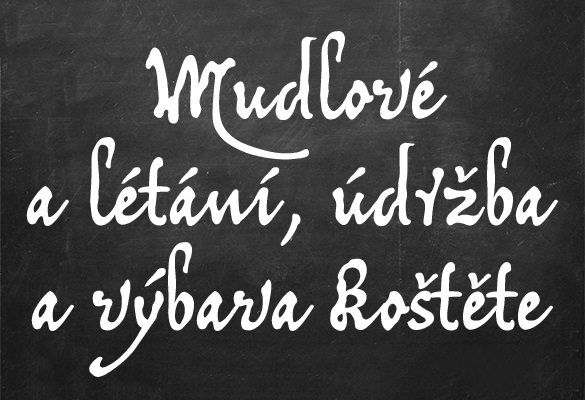 Mudlové
a létání, údržba
a výbava koštěte